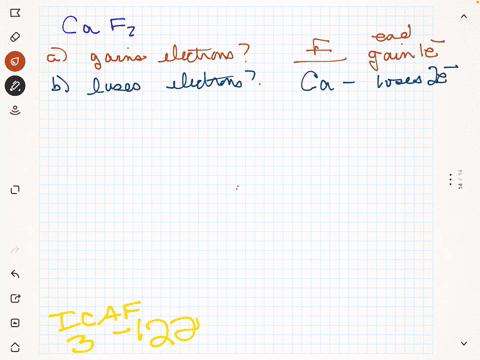 CaF₂
ead
a) gains electrons? F gain 1e⁻
b) loses electrons? Ca - loses 2e⁻
ICAF
3-122
14 / 14